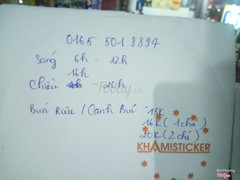 0165 501 8894
Sáng 6h - 12h
16h
Chiều - 20h
Bún Riêu / Canh Bún 13K
16K (1 chả)
20K (2 chả)
KHAMISTICKER